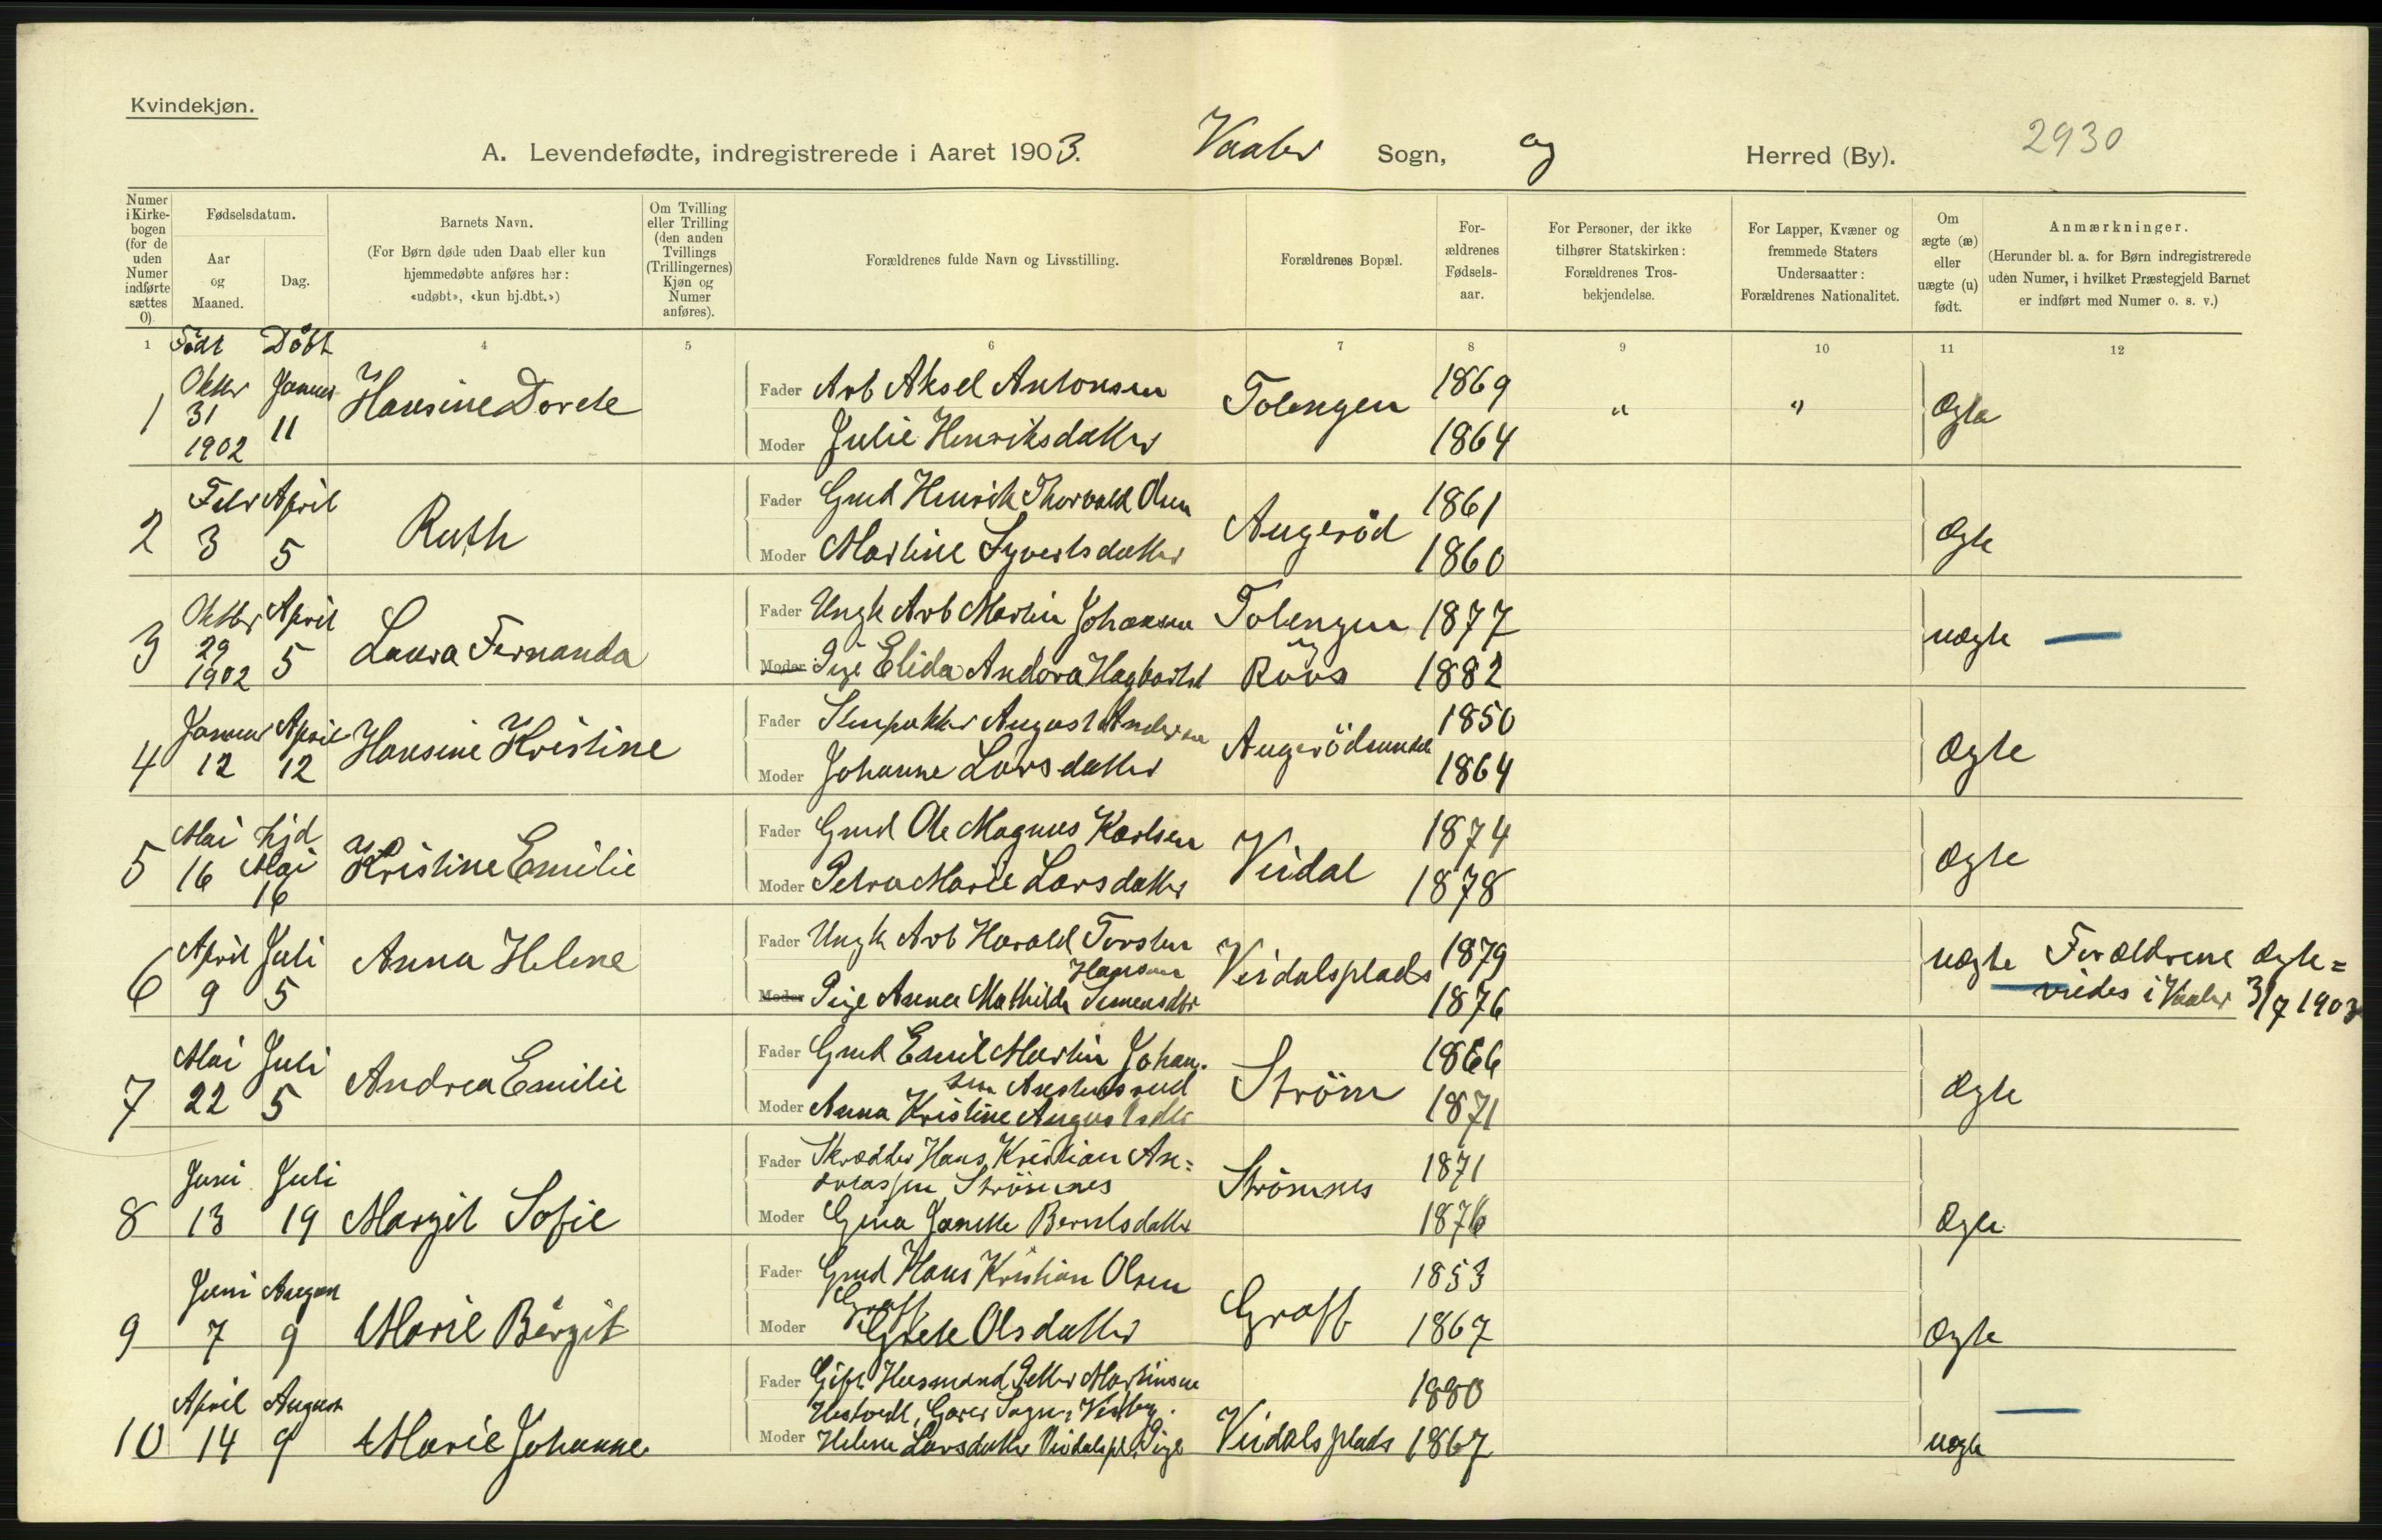 Kvindekjøn.
A. Levendefødte, indregistrerede i Aaret 1903. Vaaler Sogn, og Herred (By). 2930
Numer i Kirkebogen (for de uden Numer indførte sættes 0).
Fødselsdatum.
Aar og Maaned.
Dag.
Barnets Navn.
(For Børn døde uden Daab eller kun hjemmedøbte anføres her: «udøbt», «kun hj.dbt.»)
Om Tvilling eller Trilling (den anden Tvillings (Trillingernes) Kjøn og Numer anføres).
Forældrenes fulde Navn og Livsstilling.
Forældrenes Bopæl.
Forældrenes Fødselsaar.
For Personer, der ikke tilhører Statskirken: Forældrenes Trosbekjendelse.
For Lapper, Kvæner og fremmede Staters Undersaatter: Forældrenes Nationalitet.
Om ægte (æ) eller uægte (u) født.
Anmærkninger.
(Herunder bl. a. for Børn indregistrerede uden Numer, i hvilket Præstegjeld Barnet er indført med Numer o. s. v.)
1 Födt Döbt 4 5 6 7 8 9 10 11 12
1 Oktbr 31 1902 Januar 11 Hansine Dorete
Fader Arb Aksel Antonsen Tolengen 1869 " " Ægte
Moder Julie Henriksdatter 1864
2 Febr 3 April 5 Ruth
Fader Grnd Henrik Thorvald Olsen Augeröd 1861 Ægte
Moder Martine Syvertsdatter 1860
3 Oktbr 29 1902 April 5 Laura Fernanda
Fader Ungk Arb Martin Johansen Tolengen 1877 uægte
Moder Pige Elida Andora Hagbartsd og Röös 1882
4 Januar 12 April 12 Hansine Kristine
Fader Stenhukker August Andersen Augerödsundet 1850 Ægte
Moder Johanne Larsdatter 1864
5 Mai 16 hjd Mai 16 Kristine Emilie
Fader Grnd Ole Magnus Karlsen Virdal 1874 Ægte
Moder Petra Marie Larsdatter 1878
6 April 9 Juli 5 Anna Helene
Fader Ungk Arb Harald Torsten Hansen Virdalsplads 1879 uægte Forældrene ægte=
Moder Pige Anna Mathilde Simensdtr 1876 viedes i Vaaler 3/7 1903
7 Mai 22 Juli 5 Andrea Emilie
Fader Grnd Emil Martin Johan-
sen Ström 1866 Ægte
Moder Anna Kristine Augustsdtr 1871
8 Juni 13 Juli 19 Margit Sofie
Fader Skrædder Hans Kristian An=
dreassen Strömnes Strömnes 1871
Moder Gina Janette Berntsdatter 1876 Ægte
9 Juni 7 August 9 Marie Birgit
Fader Grnd Hans Kristian Olsen 1853
Graff Graff
Moder Grete Olsdatter 1867 Ægte
10 April 14 August 9 Marie Johanne
Fader Gift Husmand Petter Martinsen 1880
Hestvedt, Garer Sogn i Vestby.
Moder Helene Larsdatter Virdalspl. Pige Virdalsplads 1867 uægte